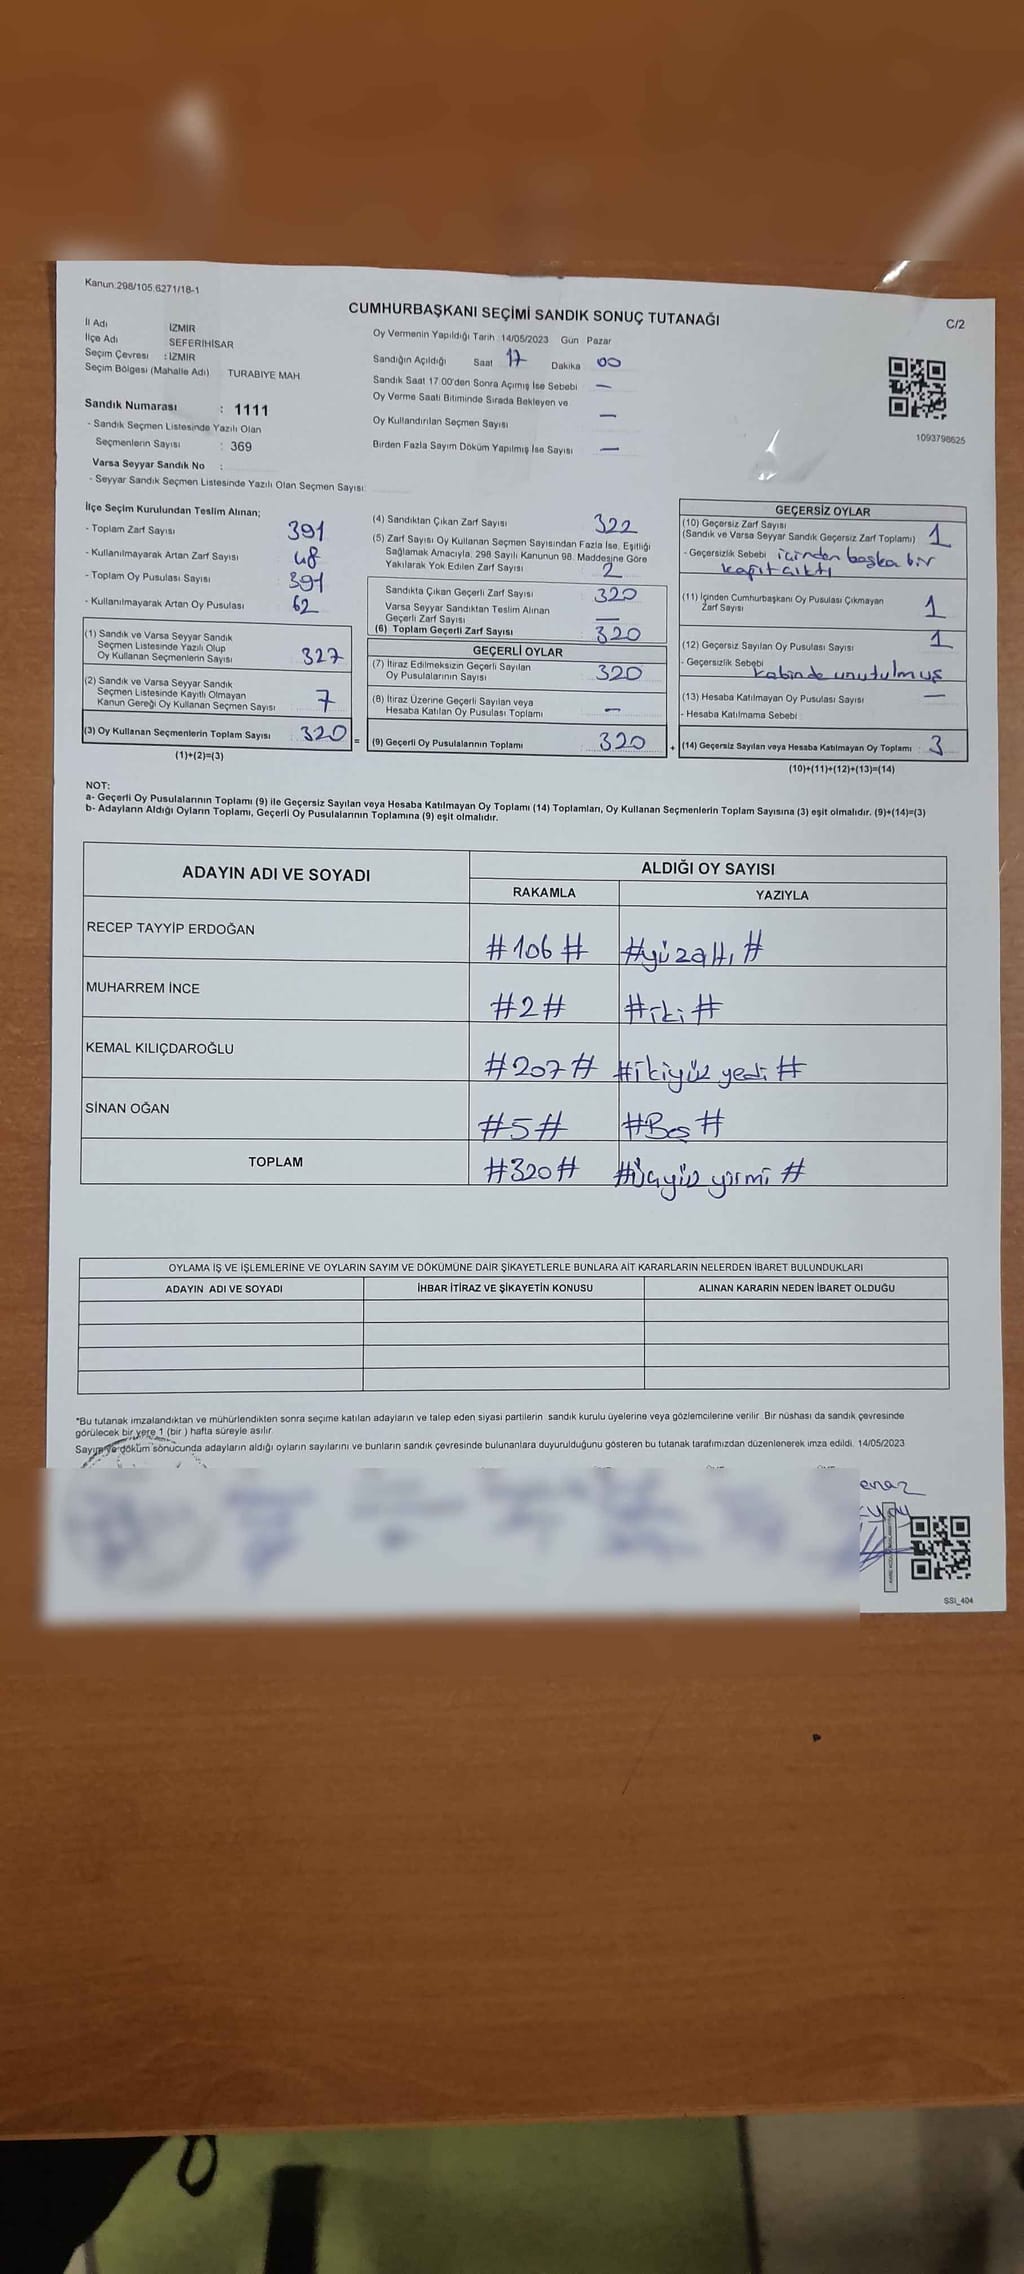 Kanun:298/105.6271/18-1
CUMHURBAŞKANI SEÇİMİ SANDIK SONUÇ TUTANAĞI
C/2
İl Adı İZMİR
İlçe Adı SEFERİHİSAR
Seçim Çevresi : İZMİR
Seçim Bölgesi (Mahalle Adı) TURABIYE MAH
Sandık Numarası : 1111
- Sandık Seçmen Listesinde Yazılı Olan
Seçmenlerin Sayısı : 369
Varsa Seyyar Sandık No :
- Seyyar Sandık Seçmen Listesinde Yazılı Olan Seçmen Sayısı:
Oy Vermenin Yapıldığı Tarih 14/05/2023 Gün Pazar
Sandığın Açıldığı Saat 17 Dakika 00
Sandık Saat 17 00'den Sonra Açımış İse Sebebi —
Oy Verme Saati Bitiminde Sırada Bekleyen ve
Oy Kullandırılan Seçmen Sayısı —
Birden Fazla Sayım Döküm Yapılmış İse Sayısı —
1093798625
İlçe Seçim Kurulundan Teslim Alınan;
- Toplam Zarf Sayısı 391
- Kullanılmayarak Artan Zarf Sayısı 48
- Toplam Oy Pusulası Sayısı 391
- Kullanılmayarak Artan Oy Pusulası 62
(1) Sandık ve Varsa Seyyar Sandık
Seçmen Listesinde Yazılı Olup
Oy Kullanan Seçmenlerin Sayısı 327
(2) Sandık ve Varsa Seyyar Sandık
Seçmen Listesinde Kayıtlı Olmayan
Kanun Gereği Oy Kullanan Seçmen Sayısı 7
(3) Oy Kullanan Seçmenlerin Toplam Sayısı : 320 =
(1)+(2)=(3)
(4) Sandıktan Çıkan Zarf Sayısı 322
(5) Zarf Sayısı Oy Kullanan Seçmen Sayısından Fazla İse, Eşitliği
Sağlamak Amacıyla, 298 Sayılı Kanunun 98. Maddesine Göre
Yakılarak Yok Edilen Zarf Sayısı 2
Sandıkta Çıkan Geçerli Zarf Sayısı 320
Varsa Seyyar Sandıktan Teslim Alınan
Geçerli Zarf Sayısı —
(6) Toplam Geçerli Zarf Sayısı 320
GEÇERLİ OYLAR
(7) İtiraz Edilmeksizin Geçerli Sayılan
Oy Pusulalarının Sayısı 320
(8) İtiraz Üzerine Geçerli Sayılan veya
Hesaba Katılan Oy Pusulası Toplamı —
(9) Geçerli Oy Pusulalarının Toplamı 320 +
GEÇERSİZ OYLAR
(10) Geçersiz Zarf Sayısı
(Sandık ve Varsa Seyyar Sandık Geçersiz Zarf Toplamı) 1
- Geçersizlik Sebebi içinden başka bir
kağıt çıktı
(11) İçinden Cumhurbaşkanı Oy Pusulası Çıkmayan
Zarf Sayısı 1
(12) Geçersiz Sayılan Oy Pusulası Sayısı 1
- Geçersizlik Sebebi kabinde unutulmuş
(13) Hesaba Katılmayan Oy Pusulası Sayısı —
- Hesaba Katılmama Sebebi
(14) Geçersiz Sayılan veya Hesaba Katılmayan Oy Toplamı : 3
(10)+(11)+(12)+(13)=(14)
NOT:
a- Geçerli Oy Pusulalarının Toplamı (9) ile Geçersiz Sayılan veya Hesaba Katılmayan Oy Toplamı (14) Toplamları, Oy Kullanan Seçmenlerin Toplam Sayısına (3) eşit olmalıdır. (9)+(14)=(3)
b- Adayların Aldığı Oyların Toplamı, Geçerli Oy Pusulalarının Toplamına (9) eşit olmalıdır.
ADAYIN ADI VE SOYADI ALDIĞI OY SAYISI
RAKAMLA YAZIYLA
RECEP TAYYİP ERDOĞAN #106# #yüzaltı#
MUHARREM İNCE #2# #iki#
KEMAL KILIÇDAROĞLU #207# #ikiyüz yedi#
SİNAN OĞAN #5# #Beş#
TOPLAM #320# #üçyüz yirmi#
OYLAMA İŞ VE İŞLEMLERİNE VE OYLARIN SAYIM VE DÖKÜMÜNE DAİR ŞİKAYETLERLE BUNLARA AİT KARARLARIN NELERDEN İBARET BULUNDUKLARI
ADAYIN ADI VE SOYADI İHBAR İTİRAZ VE ŞİKAYETİN KONUSU ALINAN KARARIN NEDEN İBARET OLDUĞU
*Bu tutanak imzalandıktan ve mühürlendikten sonra seçime katılan adayların ve talep eden siyasi partilerin sandık kurulu üyelerine veya gözlemcilerine verilir. Bir nüshası da sandık çevresinde
görülecek bir yere 1 (bir ) hafta süreyle asılır.
Sayım ve döküm sonucunda adayların aldığı oyların sayılarını ve bunların sandık çevresinde bulunanlara duyurulduğunu gösteren bu tutanak tarafımızdan düzenlenerek imza edildi. 14/05/2023
SSI_404